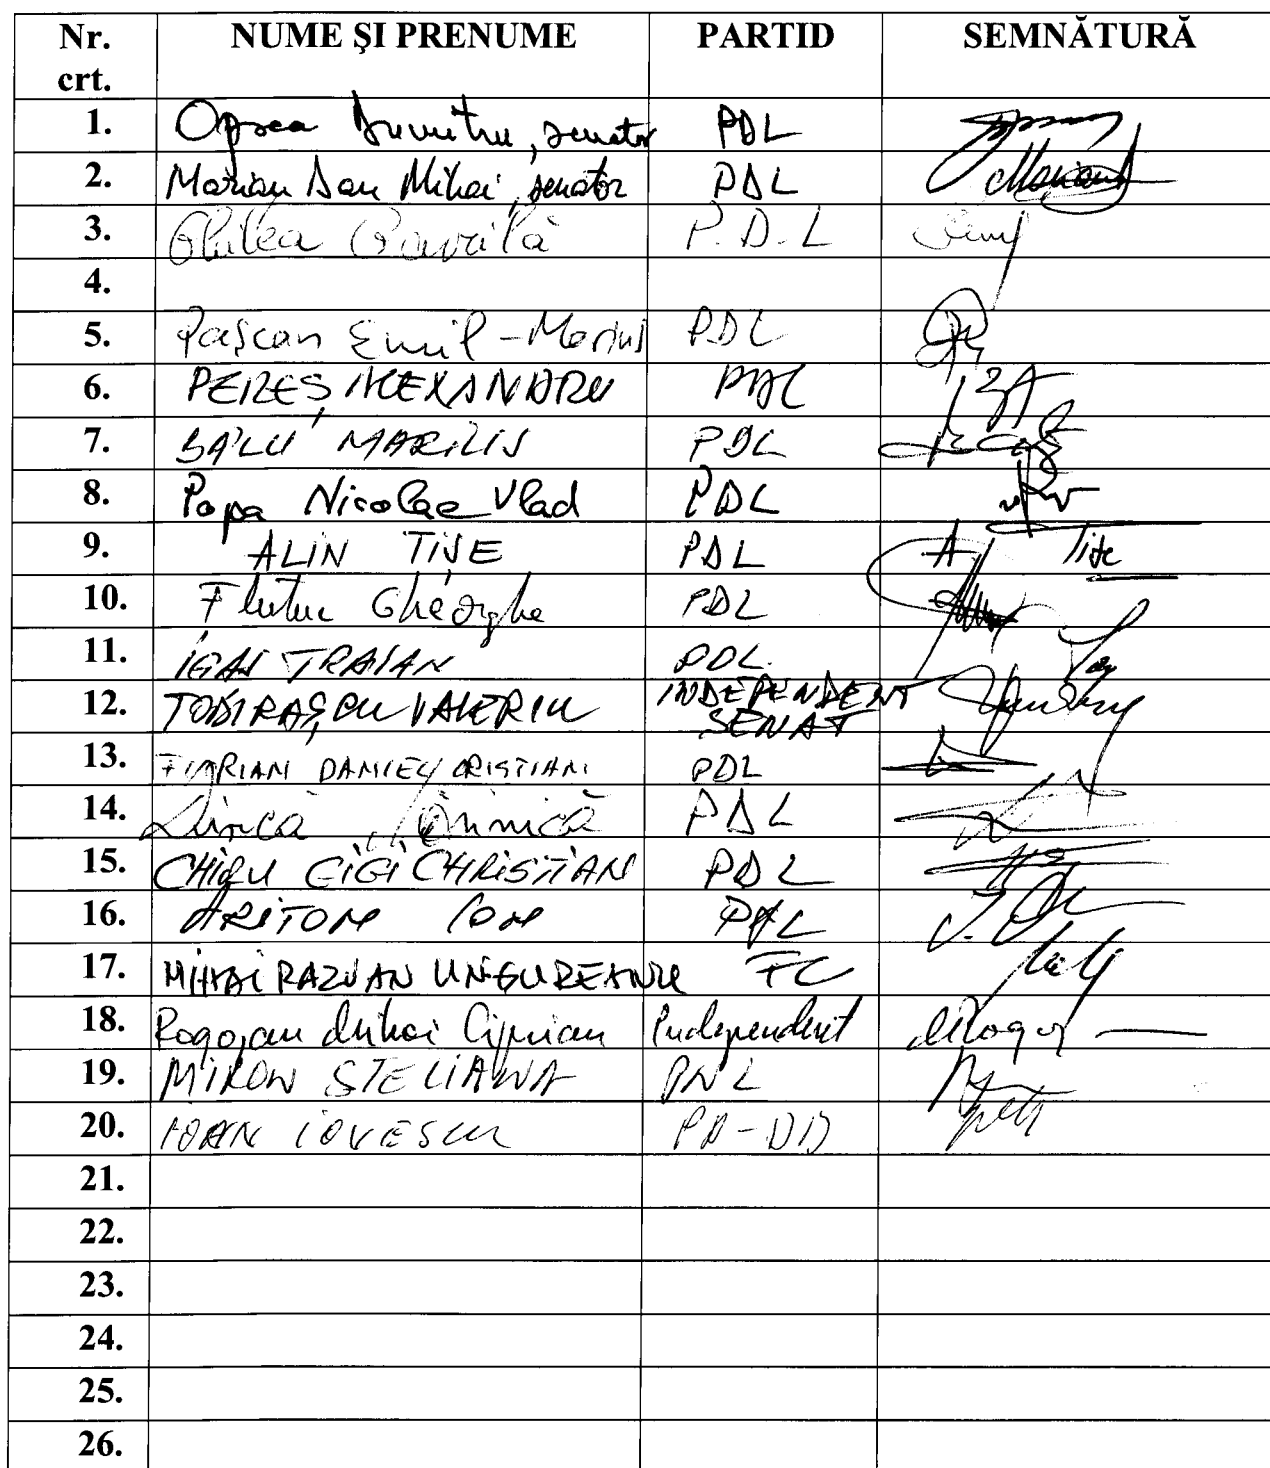 Nr. crt. NUME ŞI PRENUME PARTID SEMNĂTURĂ
1. Oprea Dumitru, senator PDL
2. Marian Dan Mihai, senator PDL Marian
3. Ghilea Găvrilă P.D.L
4.
5. Pașcan Emil-Marius PDL
6. PEREȘ ALEXANDRU PDL
7. BÂLU MARIUS PDL
8. Popa Nicolae Vlad PDL
9. ALIN TIȘE PDL A Tișe
10. Flutur Gheorghe PDL
11. IGAȘ TRAIAN PDL.
12. TODIRAȘCU VALERIU INDEPENDENT SENAT
13. FLORIAN DANIEL CRISTIAN PDL
14. Dincă Mărinică PDL
15. CHIRU GIGI CHRISTIAN PDL
16. ARITON ION PDL
17. MIHAI RAZVAN UNGUREANU FC
18. Rogojan Mihai Ciprian Independent
19. MIRON STELIANA PNL
20. IOAN IOVESCU PP-DD
21.
22.
23.
24.
25.
26.